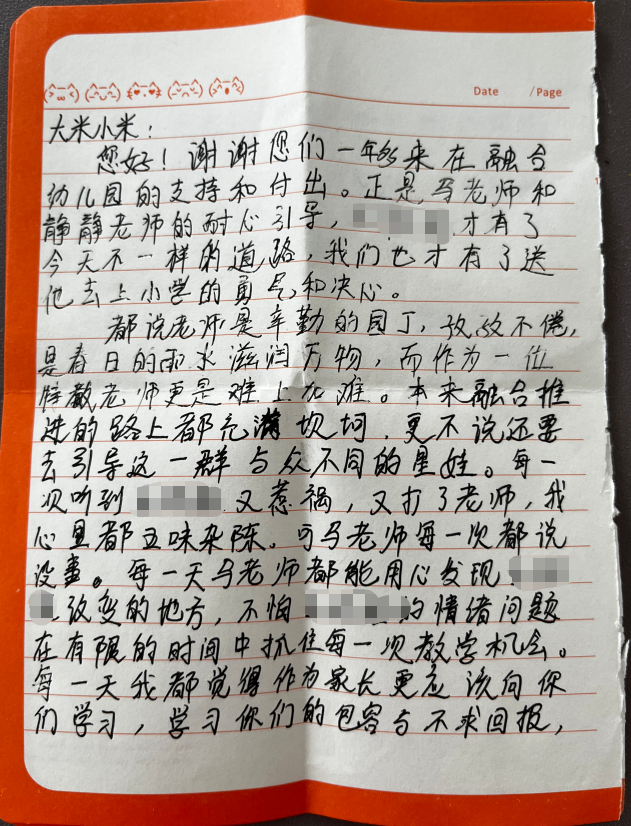 Date /Page
大米小米：
您好！谢谢您们一路来在融合
幼儿园的支持和付出。正是马老师和
静静老师的耐心引导，才有了
今天不一样的道路，我们也才有了送
他去上小学的勇气和决心。
都说老师是辛勤的园丁，孜孜不倦，
是春日的雨水滋润万物，而作为一位
特教老师更是难上加难。本来融合推
进的路上都充满坎坷，更不说还要
去引导这一群与众不同的星娃。每一
次听到又惹祸，又打了老师，我
心里都五味杂陈。可马老师每一次都说
没事。每一天马老师都能用心发现
改变的地方，不怕的情绪问题
在有限的时间中抓住每一次教学机会。
每一天我都觉得作为家长更应该向你
们学习，学习你们的包容与不求回报，